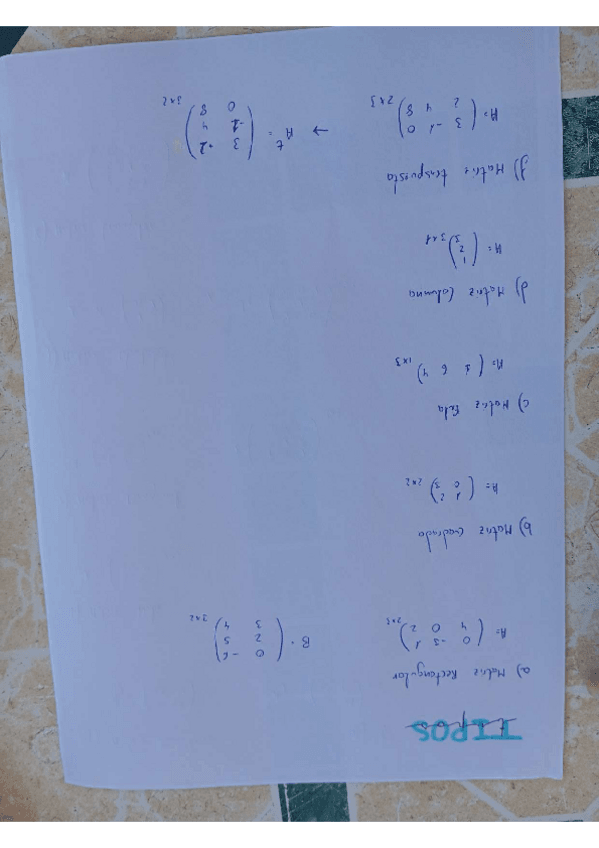 TIPOS
a) Matriz Rectangular
A= ( 0 -3 1
4 0 2 ) 2x3
B= ( 0 -6
2 5
3 4 ) 3x2
b) Matriz cuadrada
A= ( 1 2
0 3 ) 2x2
c) Matriz fila
A= ( 1 6 4 ) 1x3
d) Matriz Columna
A= ( 1
2
3 ) 3x1
f) Matriz traspuesta
A= ( 3 -1 0
2 4 8 ) 2x3
→ A t = ( 3 -2
-1 4
0 8 ) 3x2